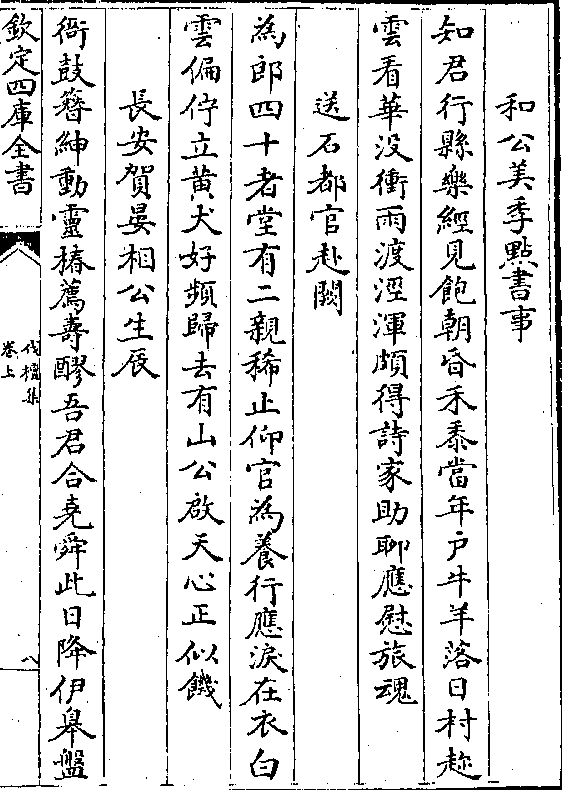 和公美季點書事
知君行縣樂經見飽朝昏禾黍當年户牛羊落日村趂
雲看華没衝雨渡涇渾頗得詩家助聊應慰旅魂
送石都官赴闕
為郎四十者堂有二親稀止仰官為養行應淚在衣白
雲偏佇立黄犬好頻歸去有山公啟天心正似饑
長安賀晏相公生辰
衙鼓簪紳動靈椿薦夀醪吾君合堯舜此日降伊皋盤
欽定四庫全書
伐檀集
卷上
八